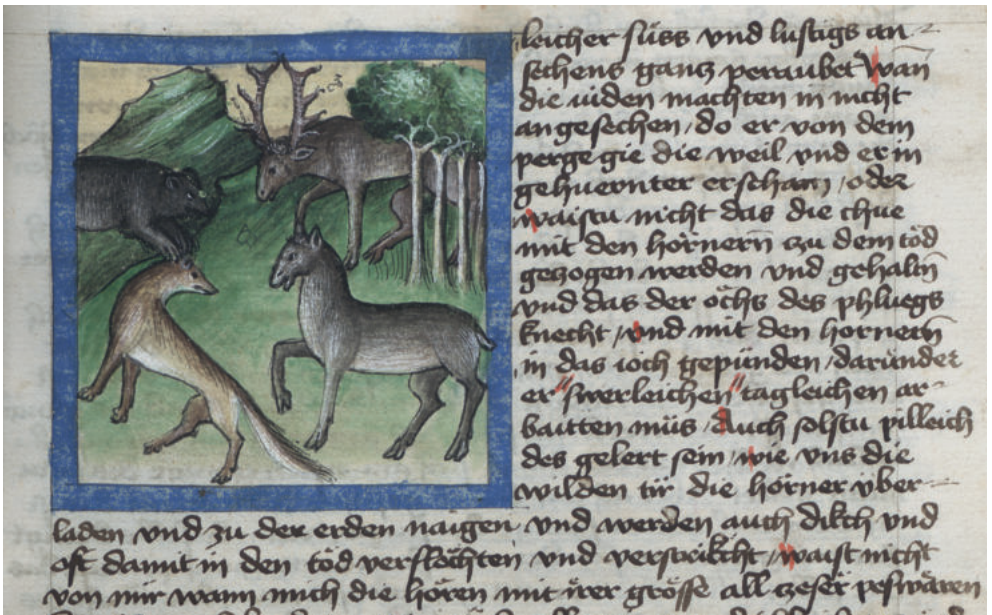 leicher süss vnd lustigs an-
sechens gancz peraubet Wan̄
die iuden machten in nicht
angesechen / do er von dem
perge gie die weil vnd er in
gehuernter erschain / oder
waistu nicht das die chue
mit den hörnern̄ czu dem tod
geczogen werden vnd gehaln̄
vnd das der ochs des phluegs
knecht / vnd mit den hornern̄
in das ioch gepünden / daründer
er swerleichen tagleichen ar-
baitten müs / Auch solstu pilleich
des gelert sein / wie vns die
wilden tir die hörner vber-
laden vnd zu der erden naigen vnd werden auch dikch vnd
oft damit in den töd verflöchten vnd verstrikcht / waist nicht
von mir wann mich die hören mit irer grösse all czeser peswären